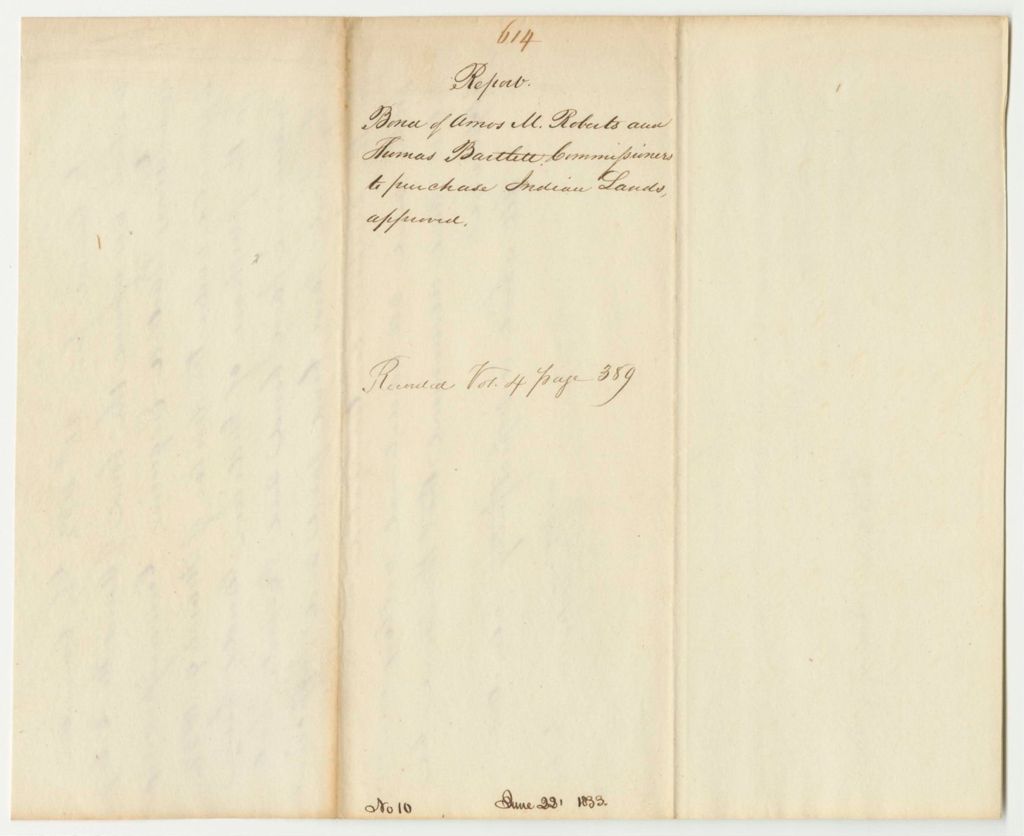 614
Report.
Bond of Amos M. Roberts and
Thomas Bartlett Commissioners
to purchase Indian Lands,
approved.
Recorded Vol. 4 page 389
No 10 June 22, 1833.